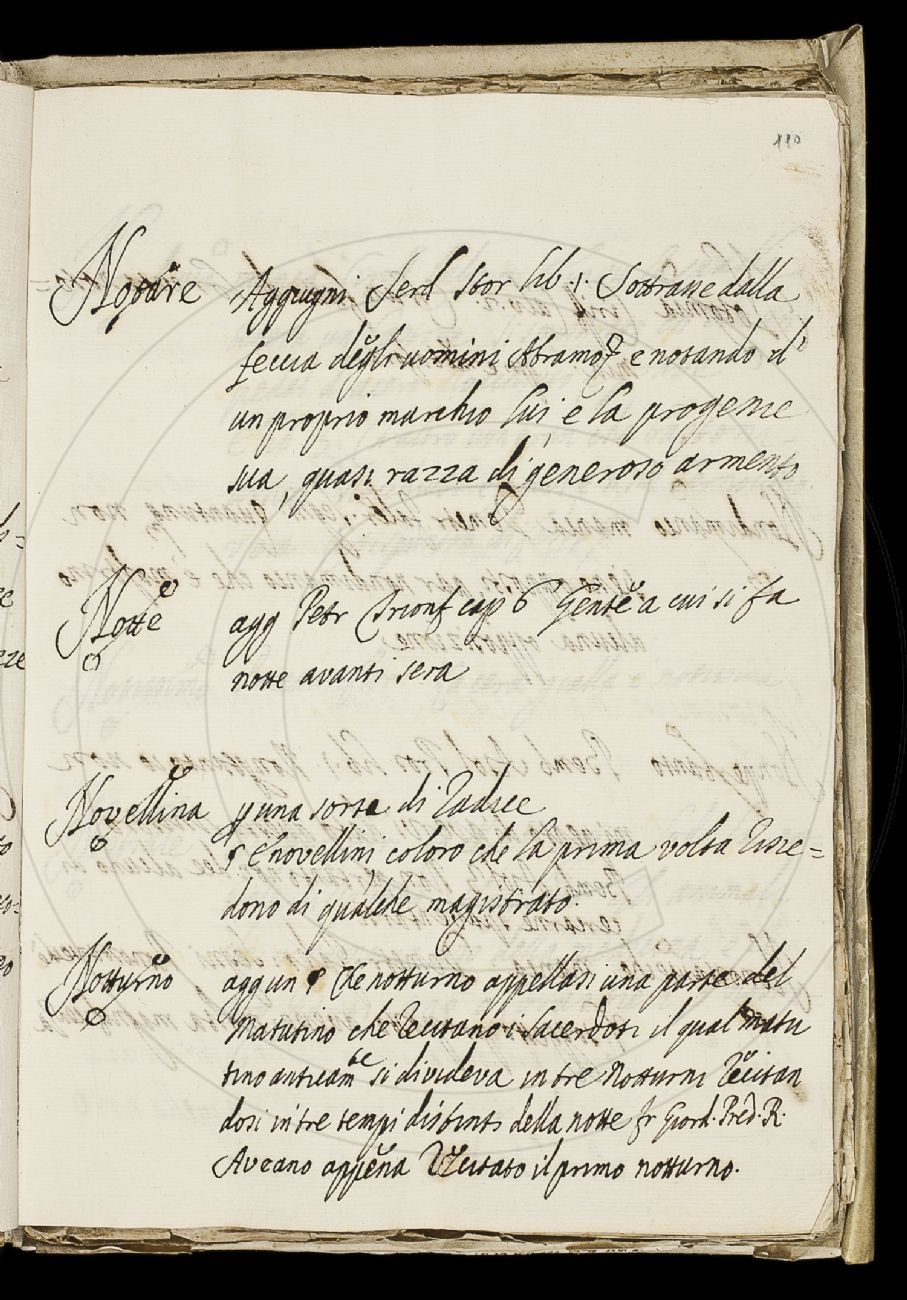 110
Notare Aggiugni Serd Stor lib. 1. Sottrasse dalla
feccia degli uomini Abramo e notando d'
un proprio marchio lui, e la progenie
sua, quasi razza di generoso armento
Notte agg Petr Trionf cap 6 Gente a cui si fa
notte avanti sera
Novellina una sorta di Radice
E novellini coloro che la prima volta risie=
dono di qualche magistrato.
Notturno aggiun Che notturno appellasi una parte del
Matutino che Recitano i Sacerdoti il qual matu
tino anticam.te si divideva in tre Notturni Recitan
dosi in tre tempi distinti della notte fr Giord. Pred. R.
Aveano appena Recitato il primo notturno.